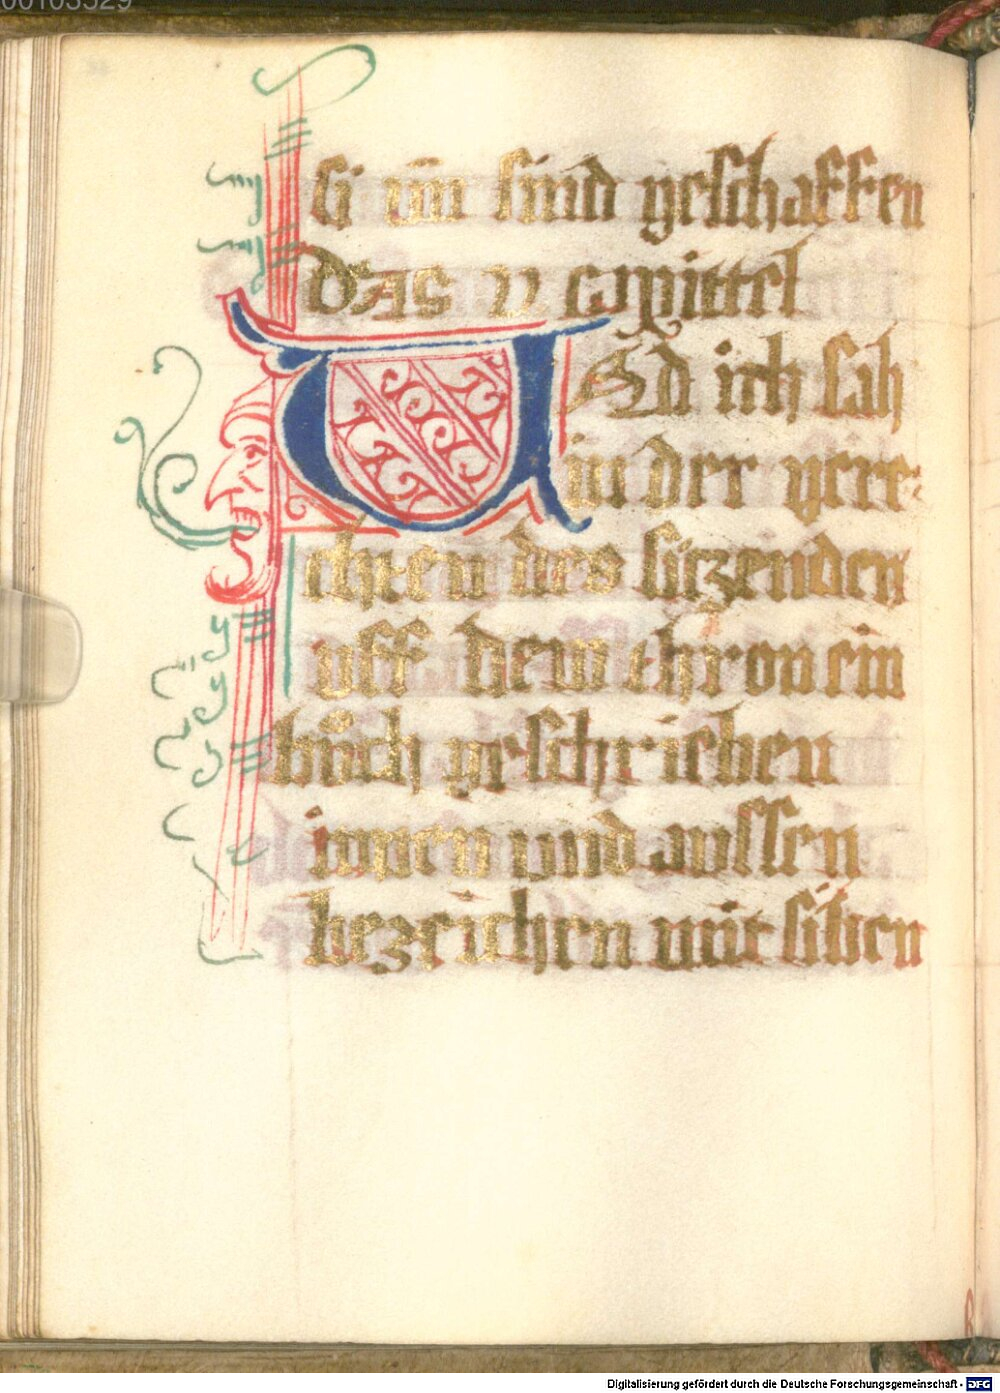 00103529
si um̄ sind geschaffen
das v capittel
Vnd ich sah
in der gere-
chten des siczenden
vff dem thron ein
bůch geschrieben
innen vnd aussen
bezeichen mit siben
Digitalisierung gefördert durch die Deutsche Forschungsgemeinschaft - DFG